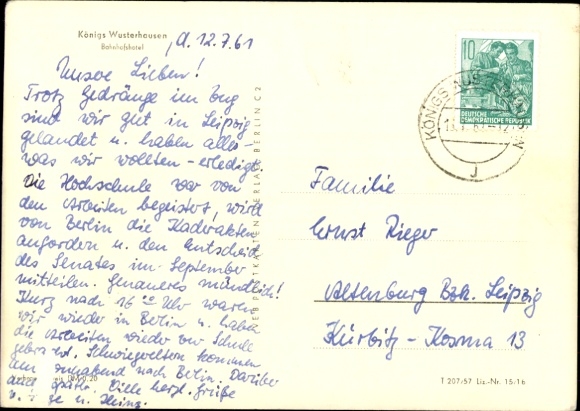 Königs Wusterhausen
Bahnhofshotel
d. 12.7.61
Unsre Lieben!
Trotz Gedränge im Zug
sind wir gut in Leipzig
gelandet u. haben alles -
was wir wollten - erledigt.
Die Hochschule war von
den Arbeiten begeistert, wird
von Berlin die Kaderakten
anfordern u. den Entscheid
des Senates im September
mitteilen. Genaueres mündlich!
Kurz nach 16 Uhr waren
wir wieder in Berlin u. haben
die Arbeiten wieder zur Schule
gebracht. Schwiegereltern kommen
am Sonnabend nach Berlin. Darüber
später. Viele herzl. Grüße
10
DEUTSCHE
DEMOKRATISCHE REPUBLIK
KÖNIGS WUSTERHAUSEN
J
Familie
Ernst Rieger
Altenburg Bzk. Leipzig
Kürbitz-Kosma 13
VEB POSTKARTEN-VERLAG BERLIN C 2
DM 0,20
T 207/57 Liz.-Nr. 15/16